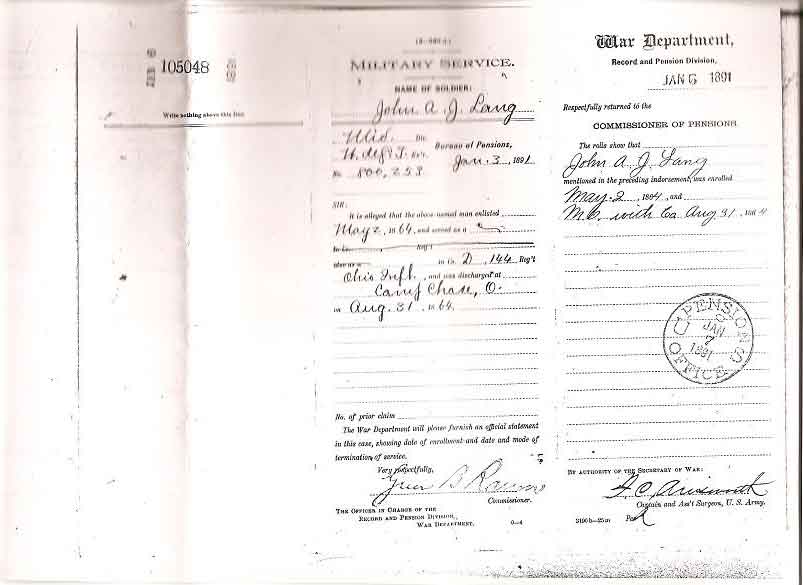 105048
Write nothing above this line
MILITARY SERVICE.
NAME OF SOLDIER:
John A. J. Lang
Mid. Div.
Bureau of Pensions,
No. 800,253
Jan. 3, 1891
SIR:
It is alleged that the above-named man enlisted
May 2, 1864, and served as a
in Co. , Reg't
also as a in Co. D, 144 Reg't
Ohio Inft., and was discharged at
Camp Chase, O.
on Aug. 31, 1864.
No. of prior claim
The War Department will please furnish an official statement
in this case, showing date of enrollment and date and mode of
termination of service.
Very respectfully,
Green B Raum
Commissioner.
THE OFFICER IN CHARGE OF THE
RECORD AND PENSION DIVISION,
WAR DEPARTMENT.
War Department,
Record and Pension Division,
JAN 6 1891
Respectfully returned to the
COMMISSIONER OF PENSIONS.
The rolls show that
John A. J. Lang
mentioned in the preceding indorsement, was enrolled
May 2, 1864, and
M.O. with Co Aug 31, 1864
U.S. PENSION OFFICE
JAN
7
1891
BY AUTHORITY OF THE SECRETARY OF WAR:
F. C. Ainsworth
Captain and Ass't Surgeon, U. S. Army.
3190 b—25 m
Per